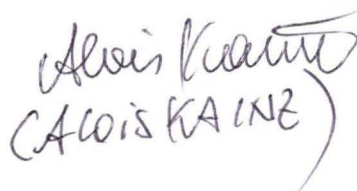 Alois Kainz
(ALOiS KAINZ)